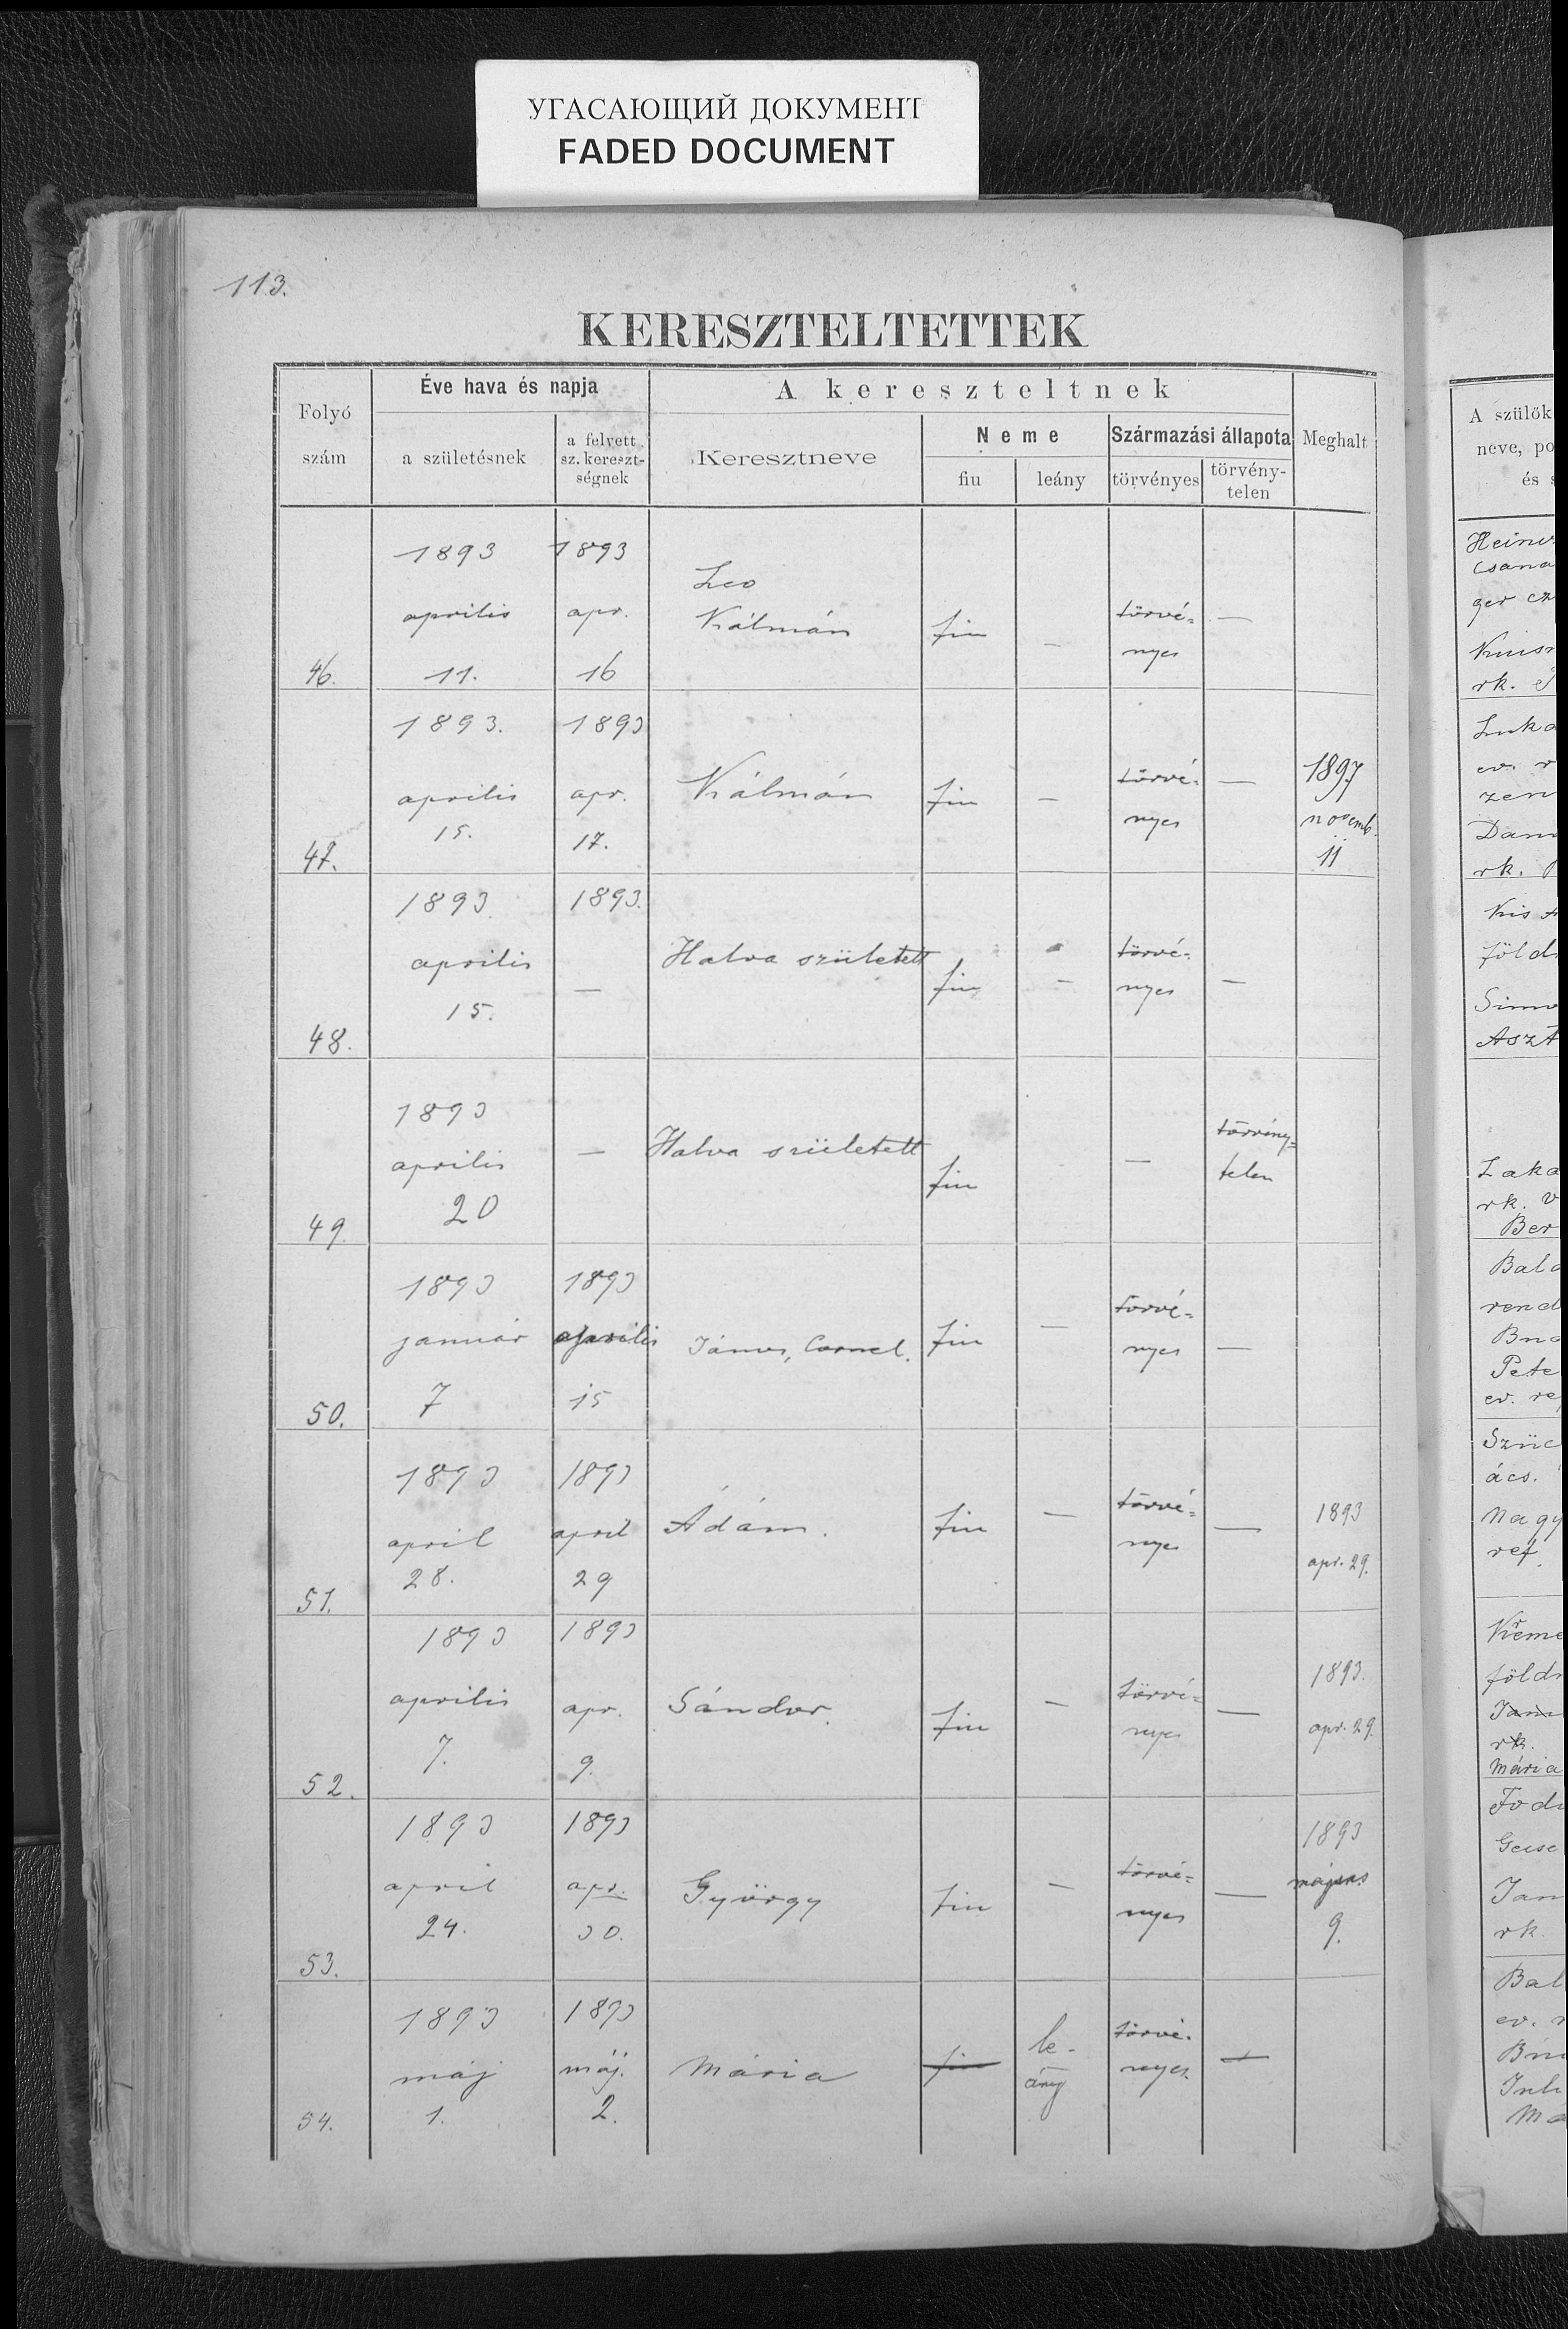 УГАСАЮЩИЙ ДОКУМЕНТ
FADED DOCUMENT
113.
KERESZTELTETTEK
Folyó szám
Éve hava és napja
a születésnek
a felvett sz. kereszt-ségnek
A kereszteltnek
Keresztneve
Neme
fiu
leány
Származási állapota
törvényes
törvény-telen
Meghalt
A szülők
neve, po
és
46.
1893 aprilis 11.
1893 apr. 16
Leo
Kálmán
fiu
—
törvé-
nyes
—
47.
1893. aprilis 15.
1893 apr. 17.
Kálmán
fiu
—
törvé-
nyes
—
1897
novemb.
11
48.
1893. aprilis 15.
1893. —
Halva született
fiu
—
törvé-
nyes
—
49.
1893 aprilis 20
—
Halva született
fiu
—
törvény-
telen
50.
1893 január 7
1893 aprilis 15
János, Cornel.
fiu
—
törvé-
nyes
—
51.
1893 april 28.
1893 april 29
Ádám.
fiu
—
törvé-
nyes
—
1893
apr. 29.
52.
1893 aprilis 7.
1893 apr. 9.
Sándor.
fiu
—
törvé-
nyes
—
1893.
apr. 29.
53.
1893 april 24.
1893 apr. 30.
György
fiu
—
törvé-
nyes
—
1893
május
9.
54.
1893 máj 1.
1893 máj. 2.
Mária
fiu
le-
ány
törvé-
nyes
—
Csana
ger cz
rk.
Luka
ev. r
zen
rk.
Kis
föld
Simo
Aszt
Laka
rk. v
Ber
Bala
rend
Pete
ev. re
Szüc
ács.
Nagy
ref.
föld
rk.
Mária
Fod
rk.
Bal
ev.
Ma